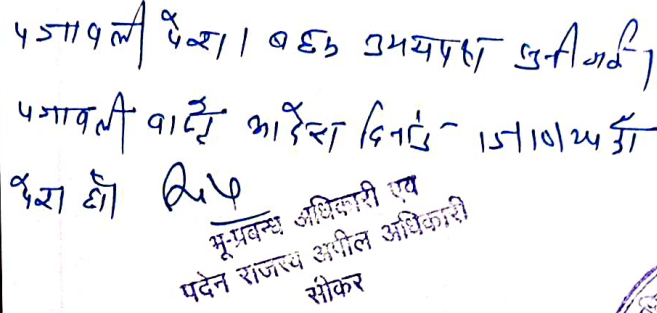 पत्रावली पेश। बहस उभयपक्ष सुनी गई।
पत्रावली वास्ते आदेश दिनांक 15/10/24 को
पेश हो।
भू-प्रबन्ध अधिकारी एवं
पदेन राजस्व अपील अधिकारी
सीकर